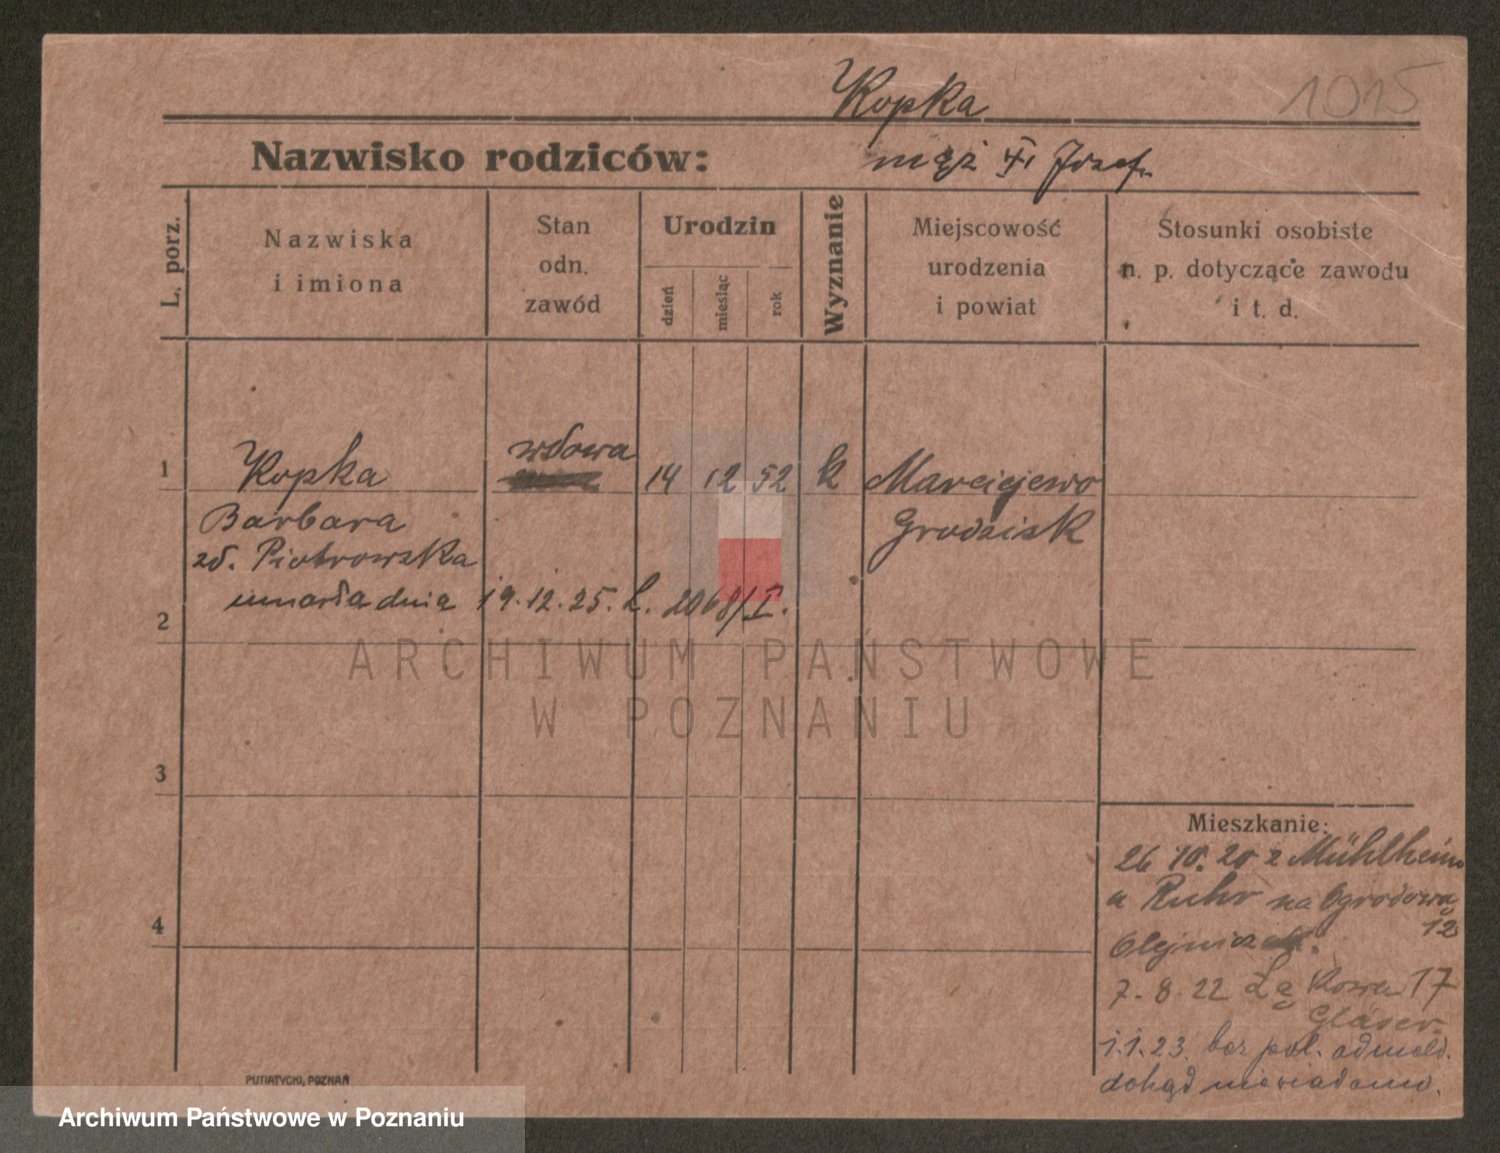 Kopka
1015
Nazwisko rodziców:
mąż † Józef.
L. porz.
Nazwiska
i imiona
Stan
odn.
zawód
Urodzin
dzień
miesiąc
rok
Wyznanie
Miejscowość
urodzenia
i powiat
Stosunki osobiste
n. p. dotyczące zawodu
i t. d.
1
Kopka
wdowa
14 12 52
k
Marciejewo
Barbara
Grodzisk
zd. Piotrowska
umarła dnia 19.12.25. L. 2068/I.
2
ARCHIWUM PAŃSTWOWE
W POZNANIU
3
Mieszkanie:
26 10. 20 z Mühlheim
a Ruhr na Ogrodowa
12
4
7. 8. 22 Łąkowa 17
Gläser.
1.1.23. bez pol. odmeld.
dokąd niewiadomo.
PUTIATYCKI, POZNAŃ
Archiwum Państwowe w Poznaniu